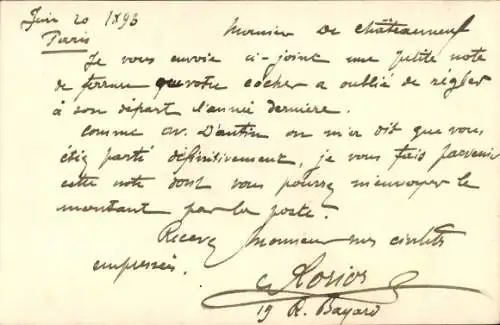 Juin 20 1896
Paris
Monsieur De Châteauneuf
Je vous envoie ci-joint une petite note
de ferrure que votre cocher a oublié de régler
à son départ l'année dernière.
Comme av. D'antin on m'a dit que vous
étiez parti définitivement, je vous fais parvenir
cette note dont vous pourrez m'envoyer le
montant par la poste.
Recevez Monsieur mes civilités
empressées.
19 R. Bayard